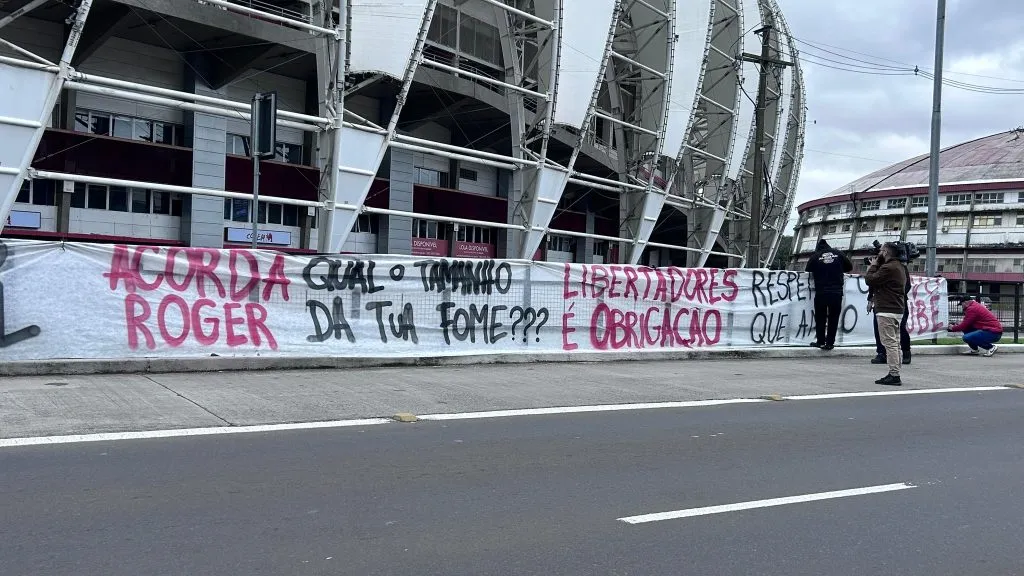 ACORDA
ROGER
QUAL O TAMANHO
DA TUA FOME???
LIBERTADORES
É OBRIGAÇÃO
QUE
DISPONÍVEL
LOJA DISPONÍVEL